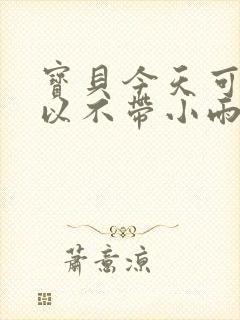 寶貝今天可
以不帶小雨
蕭意涼